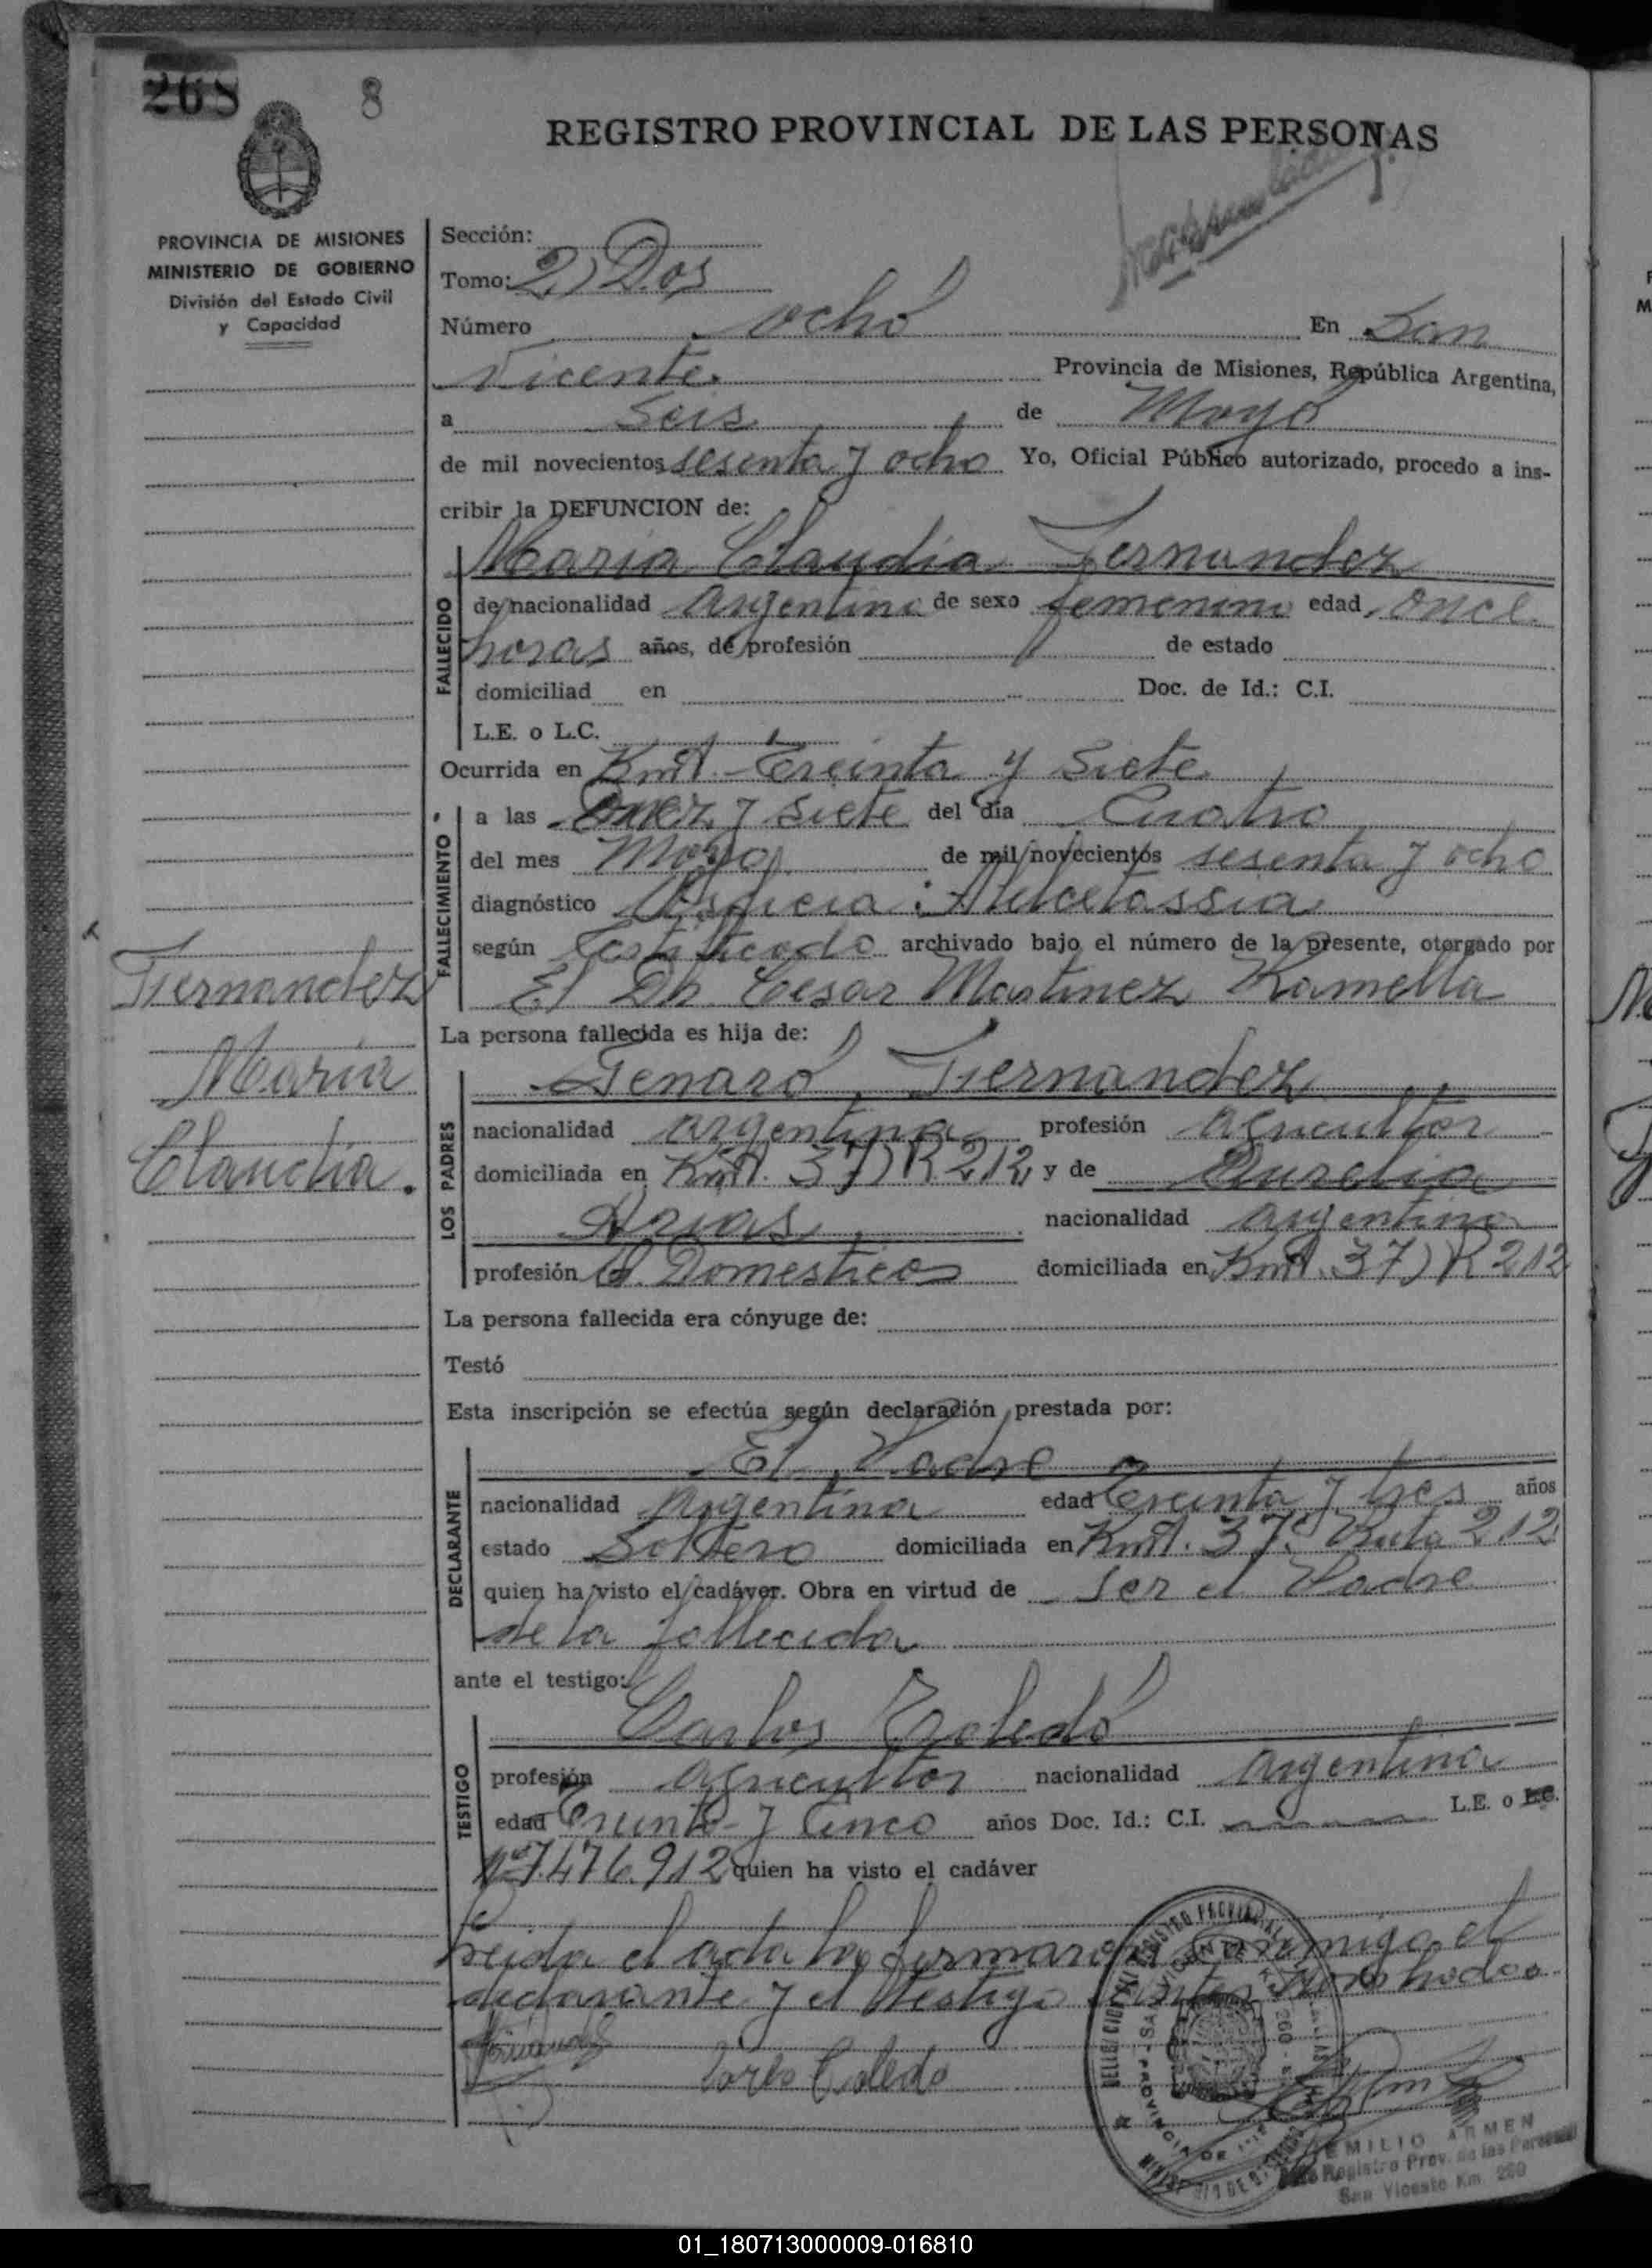 268 8
REGISTRO PROVINCIAL DE LAS PERSONAS
PROVINCIA DE MISIONES
MINISTERIO DE GOBIERNO
División del Estado Civil
y Capacidad
Sección:
Tomo: 2) Dos
Número ocho En San
Vicente. Provincia de Misiones, República Argentina,
a Seis de Mayo
de mil novecientos sesenta y ocho Yo, Oficial Público autorizado, procedo a ins-
cribir la DEFUNCION de:
FALLECIDO
Maria Claudia Fernandez
de nacionalidad Argentina de sexo femenino edad, once
horas años, de profesión de estado
domiciliad en Doc. de Id.: C.I.
L.E. o L.C.
Ocurrida en Kmt. Treinta y Siete
FALLECIMIENTO
a las y siete del día Cuatro
del mes Mayo de mil novecientos sesenta y ocho
diagnóstico
según Certificado archivado bajo el número de la presente, otorgado por
El Dr. Cesar Martinez Ramella
Fernandez
Maria
Claudia.
La persona fallecida es hija de:
LOS PADRES
Genaro Fernandez
nacionalidad argentina profesión agricultor
domiciliada en Kmt. 37) R 212 y de Aurelia
Arias nacionalidad argentina
profesión Q. Domesticos domiciliada en Kmt. 37) R 212
La persona fallecida era cónyuge de:
Testó
Esta inscripción se efectúa según declaración prestada por:
DECLARANTE
El Padre
nacionalidad Argentina edad Treinta y tres años
estado Soltero domiciliada en Kmt. 37. Ruta 212
quien ha visto el cadáver. Obra en virtud de ser el Padre
de la fallecida
ante el testigo:
TESTIGO
Carlos Toledo
profesión agricultor nacionalidad Argentina
edad Treinta y Cinco años Doc. Id.: C.I. L.E. o L.C.
Nº 7.476.912 quien ha visto el cadáver
Leida el acta la firmaron conmigo el
declarante y el testigo
Fernandez
Carlos Toledo
EMILIO ARMEN
Registro Prov. de las Personas
San Vicente Km. 260
01_180713000009-016810